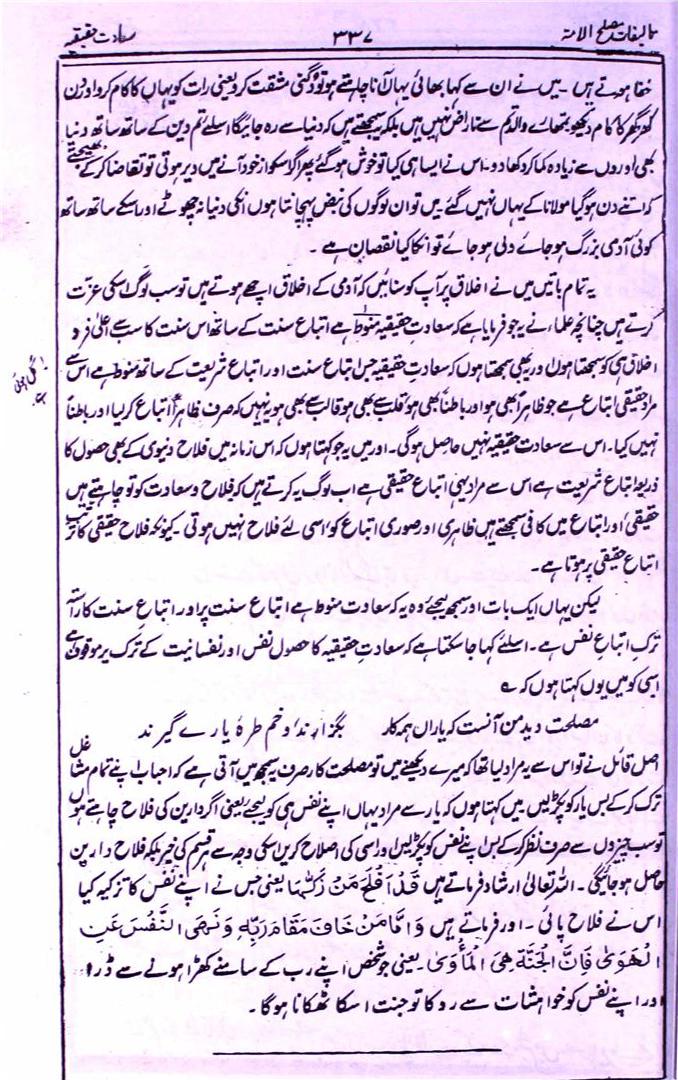 تالیفات مصلح الامۃ ۳۳۷ سعادت حقیقیہ
خفا ہوتے ہیں۔ میں نے ان سے کہا بھائی یہاں آنا چاہتے ہو تو دگنی مشقت کرو یعنی رات کو یہاں کا کام کرو اور دن
کو گھر کا کام دیکھو تمھارے والد تم سے ناراض نہیں ہیں بلکہ یہ سمجھتے ہیں کہ دنیا سے رہ جائیگا اسلئے تم دین کے ساتھ ساتھ دنیا
بھی اوروں سے زیادہ کما کر دکھا دو۔ اس نے ایسا ہی کیا تو خوش ہو گئے پھر اگر اسکو از خود آنے میں دیر ہوتی تو تقاضا کر کے بھیجتے
کہ اتنے دن ہو گیا مولانا کے یہاں نہیں گئے میں تو ان لوگوں کی نبض پہچانتا ہوں انکی دنیا نہ چھوٹے اور اسکے ساتھ ساتھ
کوئی آدمی بزرگ ہو جائے ولی ہو جائے تو انکا کیا نقصان ہے ۔
یہ تمام باتیں میں نے اخلاق پر آپ کو سنائیں کہ آدمی کے اخلاق اچھے ہوتے ہیں تو سب لوگ اسکی عزت
کرتے ہیں چنانچہ علماء نے یہ جو فرمایا ہے کہ سعادتِ حقیقیہ منوط ہے اتباع سنت کے ساتھ اس سنت کا سب سے اعلیٰ فرد
اخلاق ہی کو سمجھتا ہوں اور یہ بھی سمجھتا ہوں کہ سعادتِ حقیقیہ جس اتباع سنت اور اتباع شریعت کے ساتھ منوط ہے اس سے
مراد حقیقی اتباع ہے جو ظاہراً بھی ہو اور باطناً بھی ہو قلب سے بھی ہو قالب سے بھی ہو یہ نہیں کہ صرف ظاہراً اتباع کر لیا اور باطناً
نہیں کیا۔ اس سے سعادت حقیقیہ نہیں حاصل ہوگی ۔ اور میں یہ جو کہتا ہوں کہ اس زمانہ میں فلاح دنیوی کے بھی حصول کا
ذریعہ اتباع شریعت ہے اس سے مراد یہی اتباع حقیقی ہے اب لوگ یہ کرتے ہیں کہ فلاح و سعادت کو تو چاہتے ہیں
حقیقی اور اتباع میں کافی سمجھتے ہیں ظاہری اور صوری اتباع کو اسی لئے فلاح نہیں ہوتی ۔ کیونکہ فلاح حقیقی کا ترتب
اتباع حقیقی پر ہوتا ہے ۔
لیکن یہاں ایک بات اور سمجھ لیجئے وہ یہ کہ سعادت منوط ہے اتباع سنت پر اور اتباع سنت کا راستہ
ترک اتباع نفس ہے ۔ اسلئے کہا جا سکتا ہے کہ سعادتِ حقیقیہ کا حصول نفس اور نفسانیت کے ترک پر موقوف ہے
اسی کو میں یوں کہتا ہوں کہ ؎
مصلحت دید من آنست کہ یاراں ہمہ کار بگزارند و خم طرۂ یارے گیرند
اصل قائل نے تو اس سے یہ مراد لیا تھا کہ میرے دیکھنے میں تو مصلحت کار صرف یہ سمجھ میں آتی ہے کہ احباب اپنے تمام مشاغل
ترک کر کے بس یار کو پکڑ لیں میں کہتا ہوں کہ یار سے مراد یہاں اپنے نفس ہی کو لیجئے یعنی اگر دارین کی فلاح چاہتے ہوں
تو سب چیزوں سے صرف نظر کر کے بس اپنے نفس کو پکڑ لیں اور اسی کی اصلاح کریں اسکی وجہ سے ہر قسم کی خیر بلکہ فلاح دارین
حاصل ہو جائیگی ۔ اللہ تعالیٰ ارشاد فرماتے ہیں قَدْ اَفْلَحَ مَنْ زَكّٰىهَا یعنی جس نے اپنے نفس کا تزکیہ کیا
اس نے فلاح پائی ۔ اور فرماتے ہیں وَ اَمَّا مَنْ خَافَ مَقَامَ رَبِّهٖ وَ نَهَى النَّفْسَ عَنِ
الْهَوٰى فَاِنَّ الْجَنَّةَ هِىَ الْمَاْوٰى۔ یعنی جو شخص اپنے رب کے سامنے کھڑا ہونے سے ڈرا
اور اپنے نفس کو خواہشات سے روکا تو جنت اسکا ٹھکانا ہوگا ۔